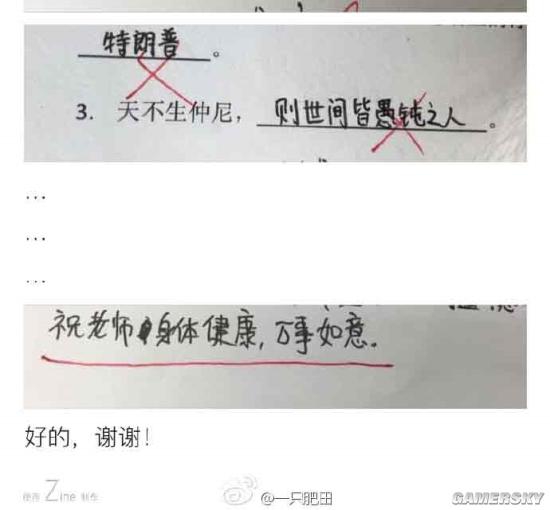 特朗普。
3. 天不生仲尼，则世间皆愚钝之人。
…
…
…
祝老师身体健康，万事如意。
好的，谢谢！
使用 Zine 制作
@一只肥田
GAMERSKY